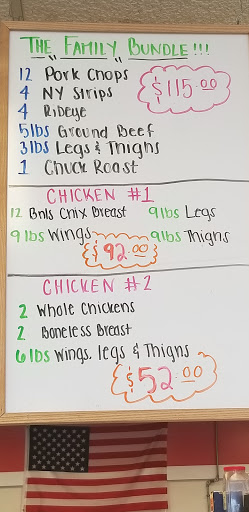 THE FAMILY BUNDLE!!!
12 Pork Chops
$115.00
4 NY Strips
4 Ribeye
5lbs Ground Beef
3lbs Legs & Thighs
1 Chuck Roast
CHICKEN #1
12 Bnls Chix Breast 9lbs Legs
9 lbs Wings 9lbs Thighs
$92.00
CHICKEN #2
2 Whole Chickens
2 Boneless Breast
6 lbs Wings, legs & Thighs
$52.00